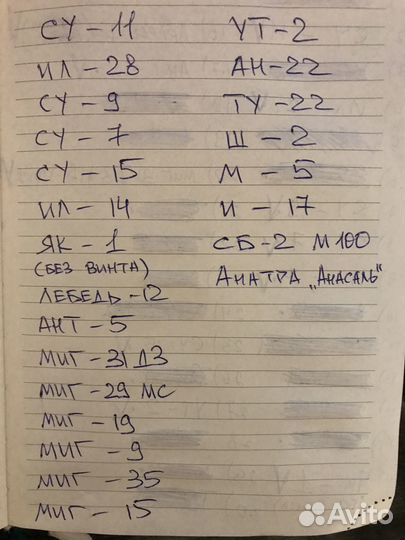 СУ - 11
ИЛ - 28
СУ - 9
СУ - 7
СУ - 15
ИЛ - 14
ЯК - 1
(БЕЗ ВИНТА)
ЛЕБЕДЬ - 12
АНТ - 5
МИГ - 31 ДЗ
МИГ - 29 МС
МИГ - 19
МИГ - 9
МИГ - 35
МИГ - 15
УТ - 2
АН - 22
ТУ - 22
Ш - 2
М - 5
И - 17
СБ - 2 М100
АНАТРА „АНАСАЛЬ"
Avito